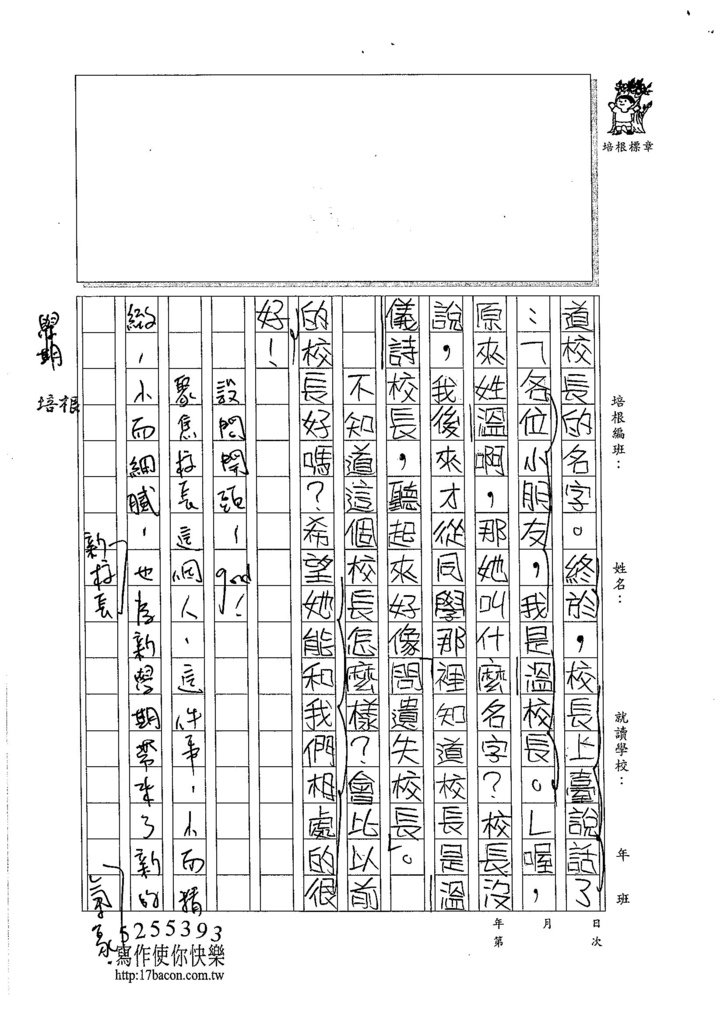 培根標章
培根編班：
姓名：
就讀學校：
年 班
道校長的名字。終於，校長上臺說話了
：「各位小朋友，我是溫校長。」喔，
原來姓溫啊，那她叫什麼名字？校長沒
說，我後來才從同學那裡知道校長是溫
儀詩校長，聽起來好像問遺失校長。
不知道這個校長怎麼樣？會比以前
的校長好嗎？希望她能和我們相處的很
好！
設問開頭，good！
聚焦校長這個人，這件事，小而精
緻，小而細膩，也為新學期帶來了新的
新校長
學期
氣象
年 月 日
第 次
培根
5255393
寫作使你快樂
http:17bacon.com.tw